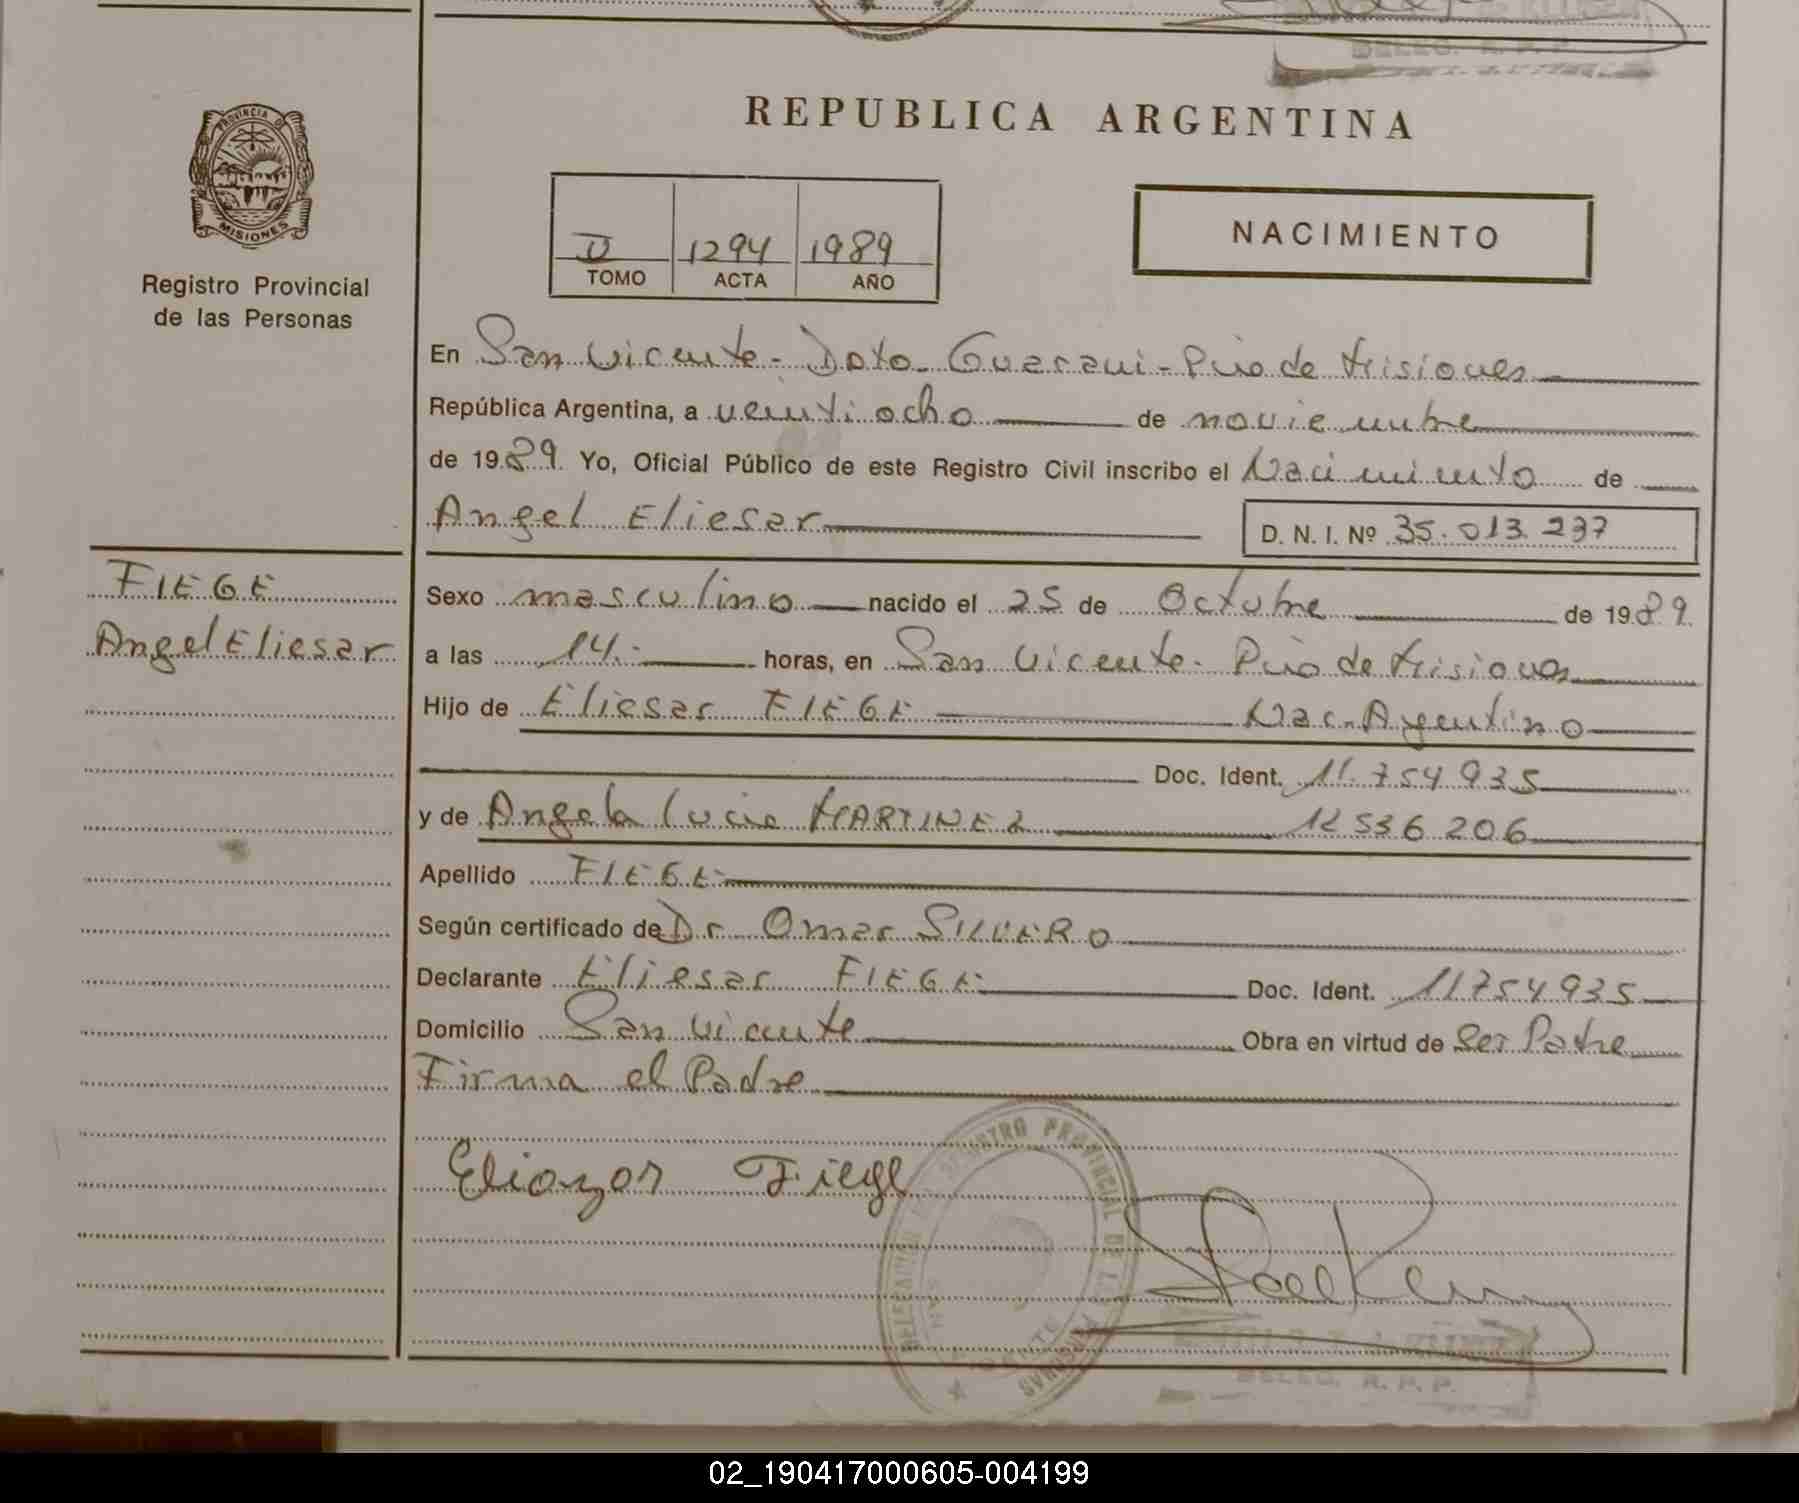 REPUBLICA ARGENTINA
PROVINCIA DE
MISIONES
Registro Provincial
de las Personas
II 1294 1989
TOMO ACTA AÑO
NACIMIENTO
En San Vicente - Dpto. Guarani - Pcia de Misiones
República Argentina, a veintiocho de noviembre
de 1989. Yo, Oficial Público de este Registro Civil inscribo el Nacimiento de
Angel Eliesar D. N. I. Nº 35.013.237
FIEGE
Angel Eliesar
Sexo masculino nacido el 25 de Octubre de 1989.
a las 14.- horas, en San Vicente - Pcia de Misiones
Hijo de Eliesar FIEGE Nac. Argentino
Doc. Ident. 11.754.935
y de Angela Lucia MARTINEZ 12536206
Apellido FIEGE
Según certificado de Dr Omar SILVERO
Declarante Eliesar FIEGE Doc. Ident. 11754935
Domicilio San Vicente Obra en virtud de Ser Padre
Firma el Padre
Eliazar Fiege
DELEGACION DEL REGISTRO PROVINCIAL DE LAS PERSONAS
DELEG. R. P. P.
02_190417000605-004199